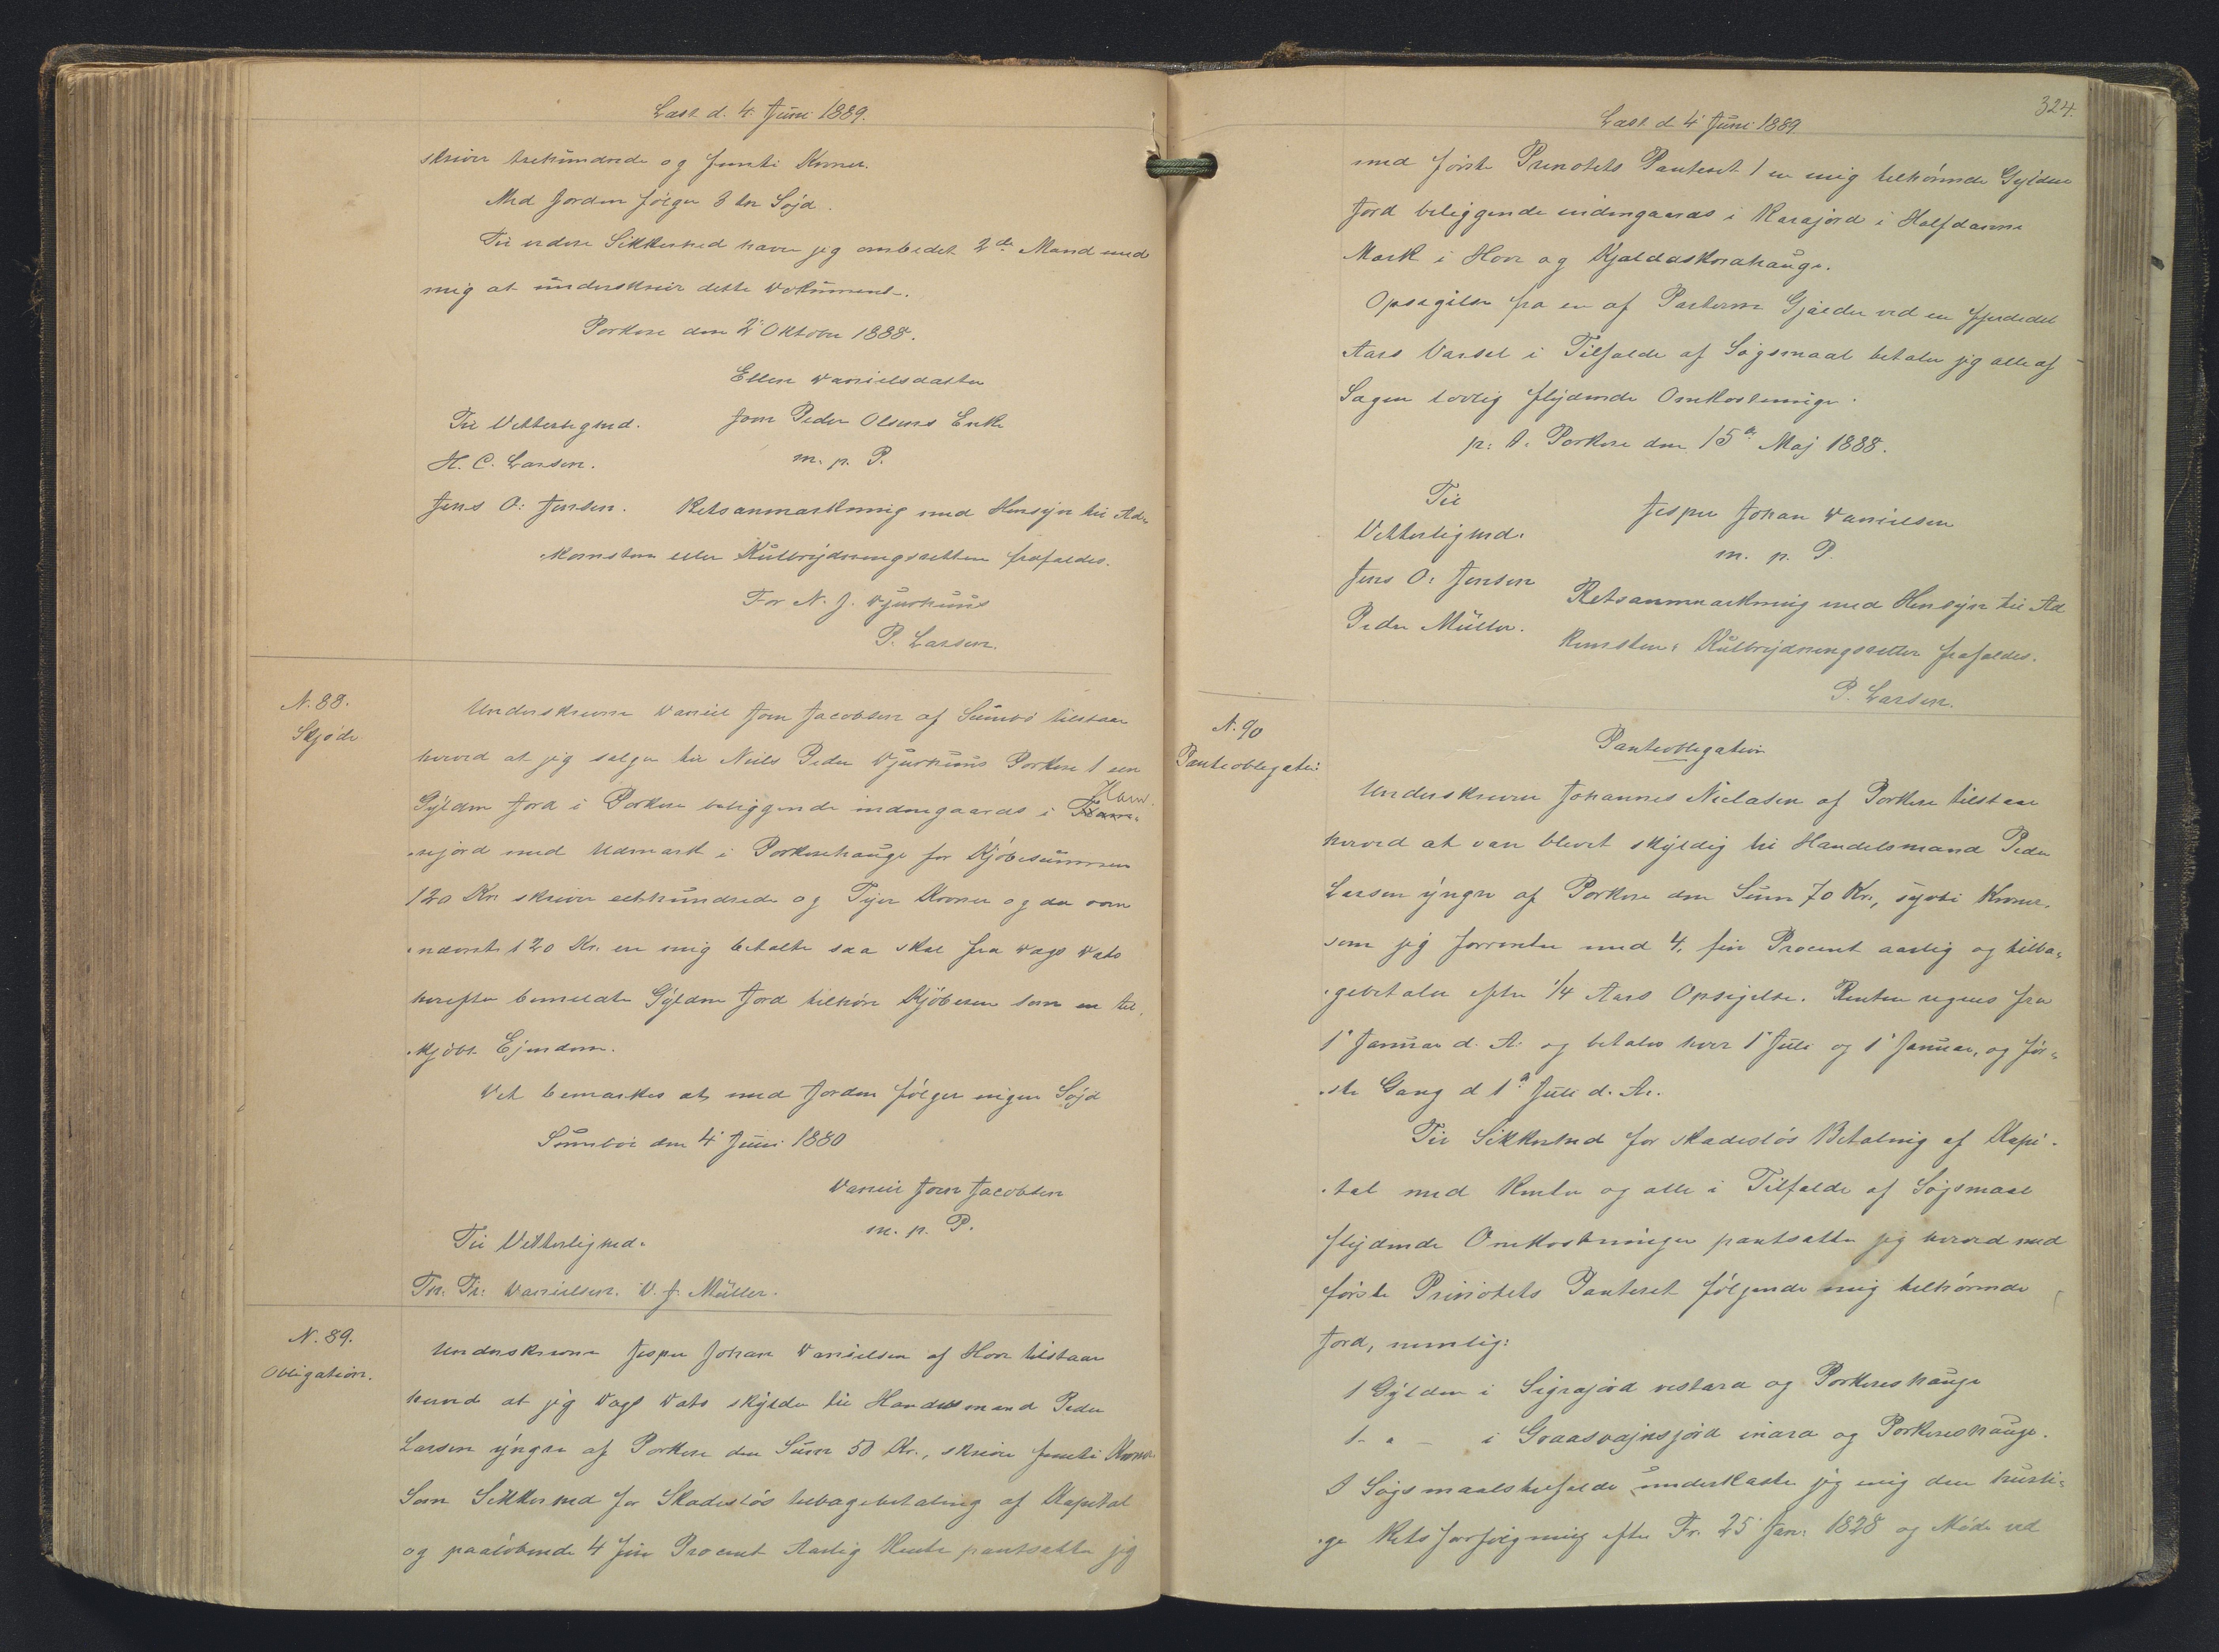 Læst d. 4. Juni 1889.
skriver trehundrede og femti Kroner.
Med Jorden følger 3 Lm Søjd.
Til videre Sikkerhed haver jeg ombedet 2de Mand med
mig at underskrive dette Dokument.
Porkere den 2' Oktober 1888.
Ellen Danielsdatter
Til Vitterlighed. Joen Peder Olsens Enke
H. C. Larsen. m. p. P.
Jens O: Jensen. Retsanmærkning med Hensyn til Ad-
komsten eller Udbrydningsretten frafaldes.
For N. J. Djurhuus
P. Larsen.
N. 88.
Skjøde
Underskrevne Daniel Joen Jacobsen af Sumbø tilstaar
herved at jeg sælger til Niels Peder Djurhuus Porkere 1 een
Gylden Jord i Porkere beliggende indengaards i Fram-
nejord med Udmark i Porkerehauge for Kjøbesummen
120 Kr. skriver eethundrede og Tyve Kroner og da oven
nævnte 120 Kr. er mig betalte saa skal fra Dags Dato
herefter bemeldte Gylden Jord tilhøre Kjøberen som en til
kjøbt Ejendom.
Det bemærkes at med Jorden følger ingen Søjd
Sumbø den 4' Juni 1880
Daniel Joen Jacobsen
m. p. P.
Til Vitterlighed.
Danielsen. D. J. Müller.
N. 89.
Obligation.
Underskrevne Jesper Johan Danielsen af Hove tilstaar
herved at jeg Dags Dato skylder til Handelsmand Peder
Larsen yngre af Porkere den Sum 50 Kr., skriver femti Kroner
Som Sikkerhed for Skadesløs tilbagebetaling af Kapital
og paaløbende 4 fire Procent Aarlig Rente pantsætter jeg
324.
Læst d 4' Juni 1889.
med første Prioritets Panteret 1 en mig tilhørende Gylden
Jord beliggende indengaards i Rasajord i Halfdanns
Mark i Hove og Kjaldaskorahauge.
Opsigelse fra en af Parterne Gjælder ved en fjerdedel
Aars Varsel i Tilfælde af Søgsmaal betaler jeg alle af
Sagen lovlig flydende Omkostninger.
p: t. Porkere den 15de Maj 1888.
Til
Vitterlighed. Jesper Johan Danielsen
m. p. P.
Jens O: Jensen
Retsanmærkning med Hensyn til Ad
Peder Müller.
komsten & Udbrydningsretten frafaldes.
P. Larsen.
N. 90
Panteobligation
Panteobligation
Underskrevne Johannes Nielasen af Porkere tilstaar
herved at være blevet skyldig til Handelsmand Peder
Larsen yngre af Porkere den Sum 70 Kr., syvti Kroner.
som jeg forrenter med 4. fire Procent aarlig og tilba-
gebetaler efter 1/4 Aars Opsigelse. Renten regnes fra
1' Januar d. A. og betales hver 1' Juli og 1' Januar, og før-
ste Gang d 1ste Juli d. Ar.
Til Sikkerhed for skadesløs Betaling af Kapi-
tal med Renter og alle i Tilfælde af Søgsmaal
flydende Omkostninger pantsætter jeg herved med
første Prioritets Panteret følgende mig tilhørende
Jord, nemlig:
1 Gylden i Sigrajord vestara og Porkereshauge
1 - " - i Graasvajnsjord inara og Porkereshauge.
I Søgsmaalstilfælde underkaster jeg mig den hurti-
ge Retsforfølgning efter Fr. 25' Jan: 1828 og Møde ved